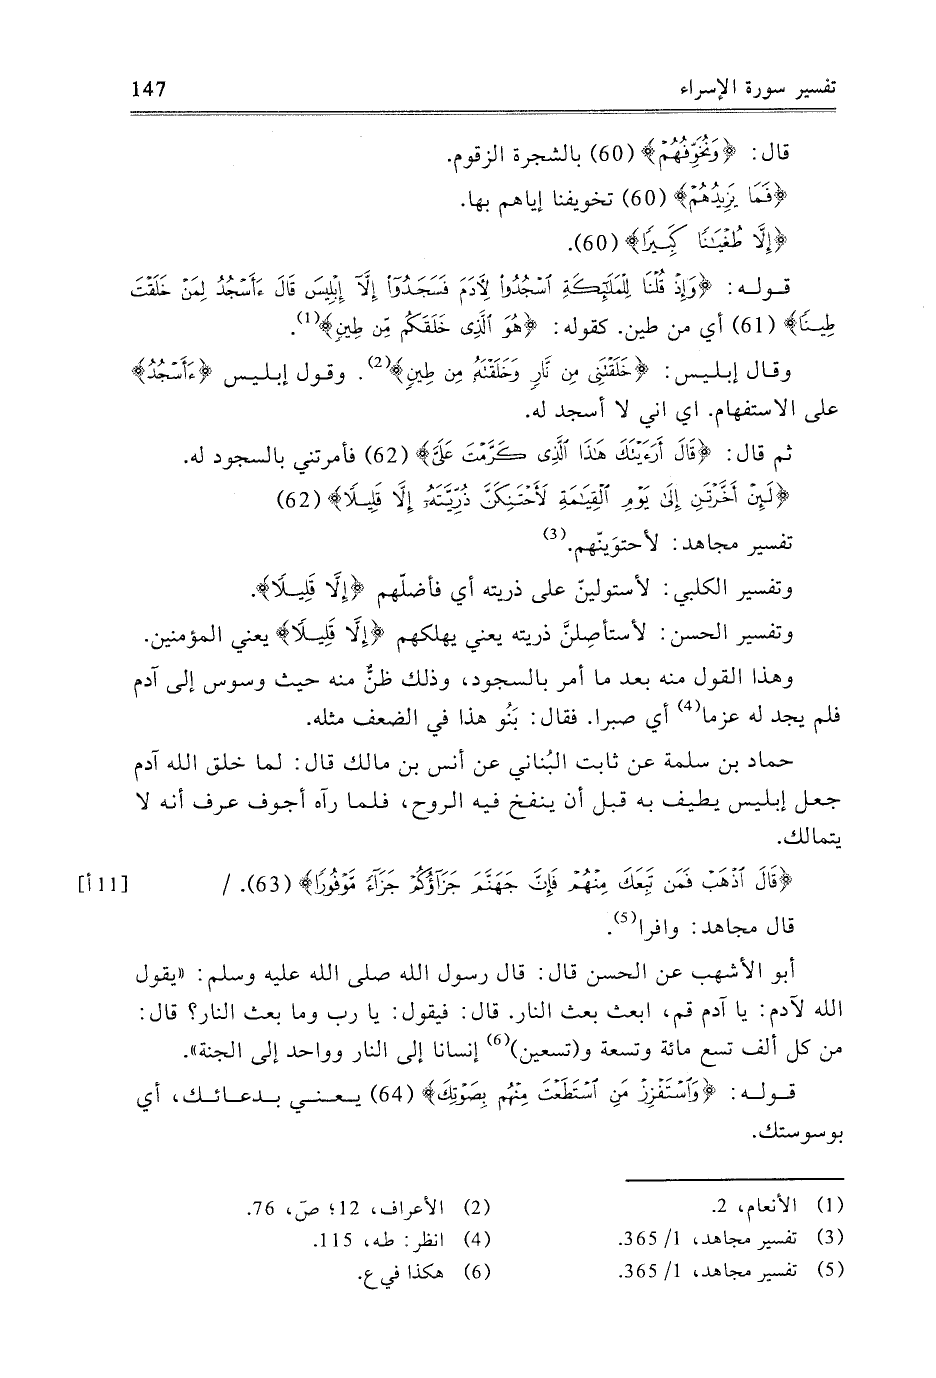 تفسير سورة الإسراء 147
قال: ﴿وَنُخَوِّفُهُمْ﴾ (60) بالشجرة الزقوم.
﴿فَمَا يَزِيدُهُمْ﴾ (60) تخويفنا إياهم بها.
﴿إِلَّا طُغْيَـٰنًا كَبِيرًا﴾ (60).
قوله: ﴿وَإِذْ قُلْنَا لِلْمَلَـٰٓئِكَةِ ٱسْجُدُوا۟ لِـَٔادَمَ فَسَجَدُوٓا۟ إِلَّآ إِبْلِيسَ قَالَ ءَأَسْجُدُ لِمَنْ خَلَقْتَ
طِينًا﴾ (61) أي من طين. كقوله: ﴿هُوَ ٱلَّذِى خَلَقَكُم مِّن طِينٍ﴾(1).
وقال إبليس: ﴿خَلَقْتَنِى مِن نَّارٍ وَخَلَقْتَهُۥ مِن طِينٍ﴾(2). وقول إبليس ﴿ءَأَسْجُدُ﴾
على الاستفهام. اي اني لا أسجد له.
ثم قال: ﴿قَالَ أَرَءَيْتَكَ هَـٰذَا ٱلَّذِى كَرَّمْتَ عَلَىَّ﴾ (62) فأمرتني بالسجود له.
﴿لَئِنْ أَخَّرْتَنِ إِلَىٰ يَوْمِ ٱلْقِيَـٰمَةِ لَأَحْتَنِكَنَّ ذُرِّيَّتَهُۥٓ إِلَّا قَلِيلًا﴾ (62)
تفسير مجاهد: لأحتوَينّهم.(3)
وتفسير الكلبي: لأستولينّ على ذريته أي فأضلّهم ﴿إِلَّا قَلِيلًا﴾.
وتفسير الحسن: لأستأصِلنَّ ذريته يعني يهلكهم ﴿إِلَّا قَلِيلًا﴾ يعني المؤمنين.
وهذا القول منه بعد ما أمر بالسجود، وذلك ظنٌّ منه حيث وسوس إلى آدم
فلم يجد له عزما(4) أي صبرا. فقال: بَنُو هذا في الضعف مثله.
حماد بن سلمة عن ثابت البُناني عن أنس بن مالك قال: لما خلق الله آدم
جعل إبليس يطيف به قبل أن ينفخ فيه الروح، فلما رآه أجوف عرف أنه لا
يتمالك.
﴿قَالَ ٱذْهَبْ فَمَن تَبِعَكَ مِنْهُمْ فَإِنَّ جَهَنَّمَ جَزَآؤُكُمْ جَزَآءً مَّوْفُورًا﴾ (63). / [11أ]
قال مجاهد: وافرا(5).
أبو الأشهب عن الحسن قال: قال رسول الله صلى الله عليه وسلم: «يقول
الله لآدم: يا آدم قم، ابعث بعث النار. قال: فيقول: يا رب وما بعث النار؟ قال:
من كل ألف تسع مائة وتسعة و(تسعين)(6) إنسانا إلى النار وواحد إلى الجنة».
قوله: ﴿وَٱسْتَفْزِزْ مَنِ ٱسْتَطَعْتَ مِنْهُم بِصَوْتِكَ﴾ (64) يعني بدعائك، أي
بوسوستك.
(1) الأنعام، 2. (2) الأعراف، 12؛ صۤ، 76.
(3) تفسير مجاهد، 1/ 365. (4) انظر: طه، 115.
(5) تفسير مجاهد، 1/ 365. (6) هكذا في ع.